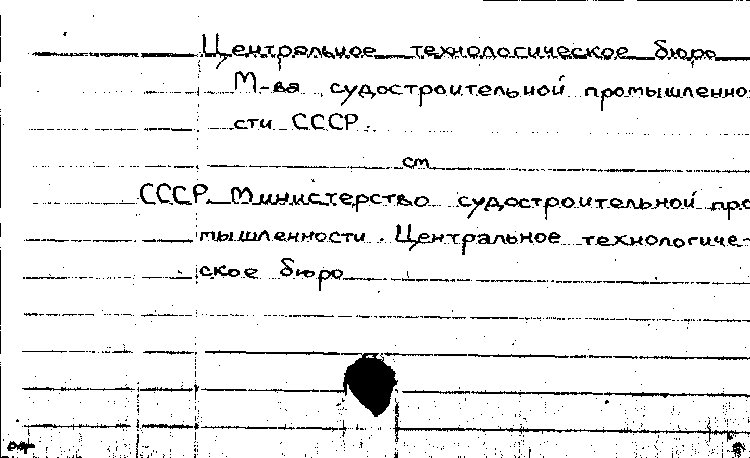 Центральное технологическое бюро
М-ва судостроительной промышленно
сти СССР.
см
СССР. Министерство судостроительной про
мышленности. Центральное технологиче-
ское бюро